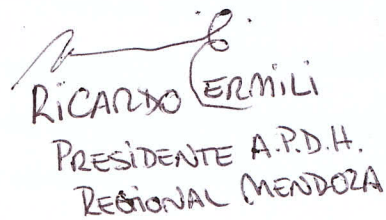 RICARDO ERMILI
PRESIDENTE A.P.D.H.
REGIONAL MENDOZA